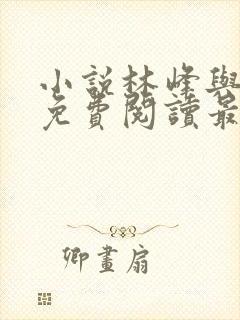 小說林峰與
免費閱讀最
卿畫扇